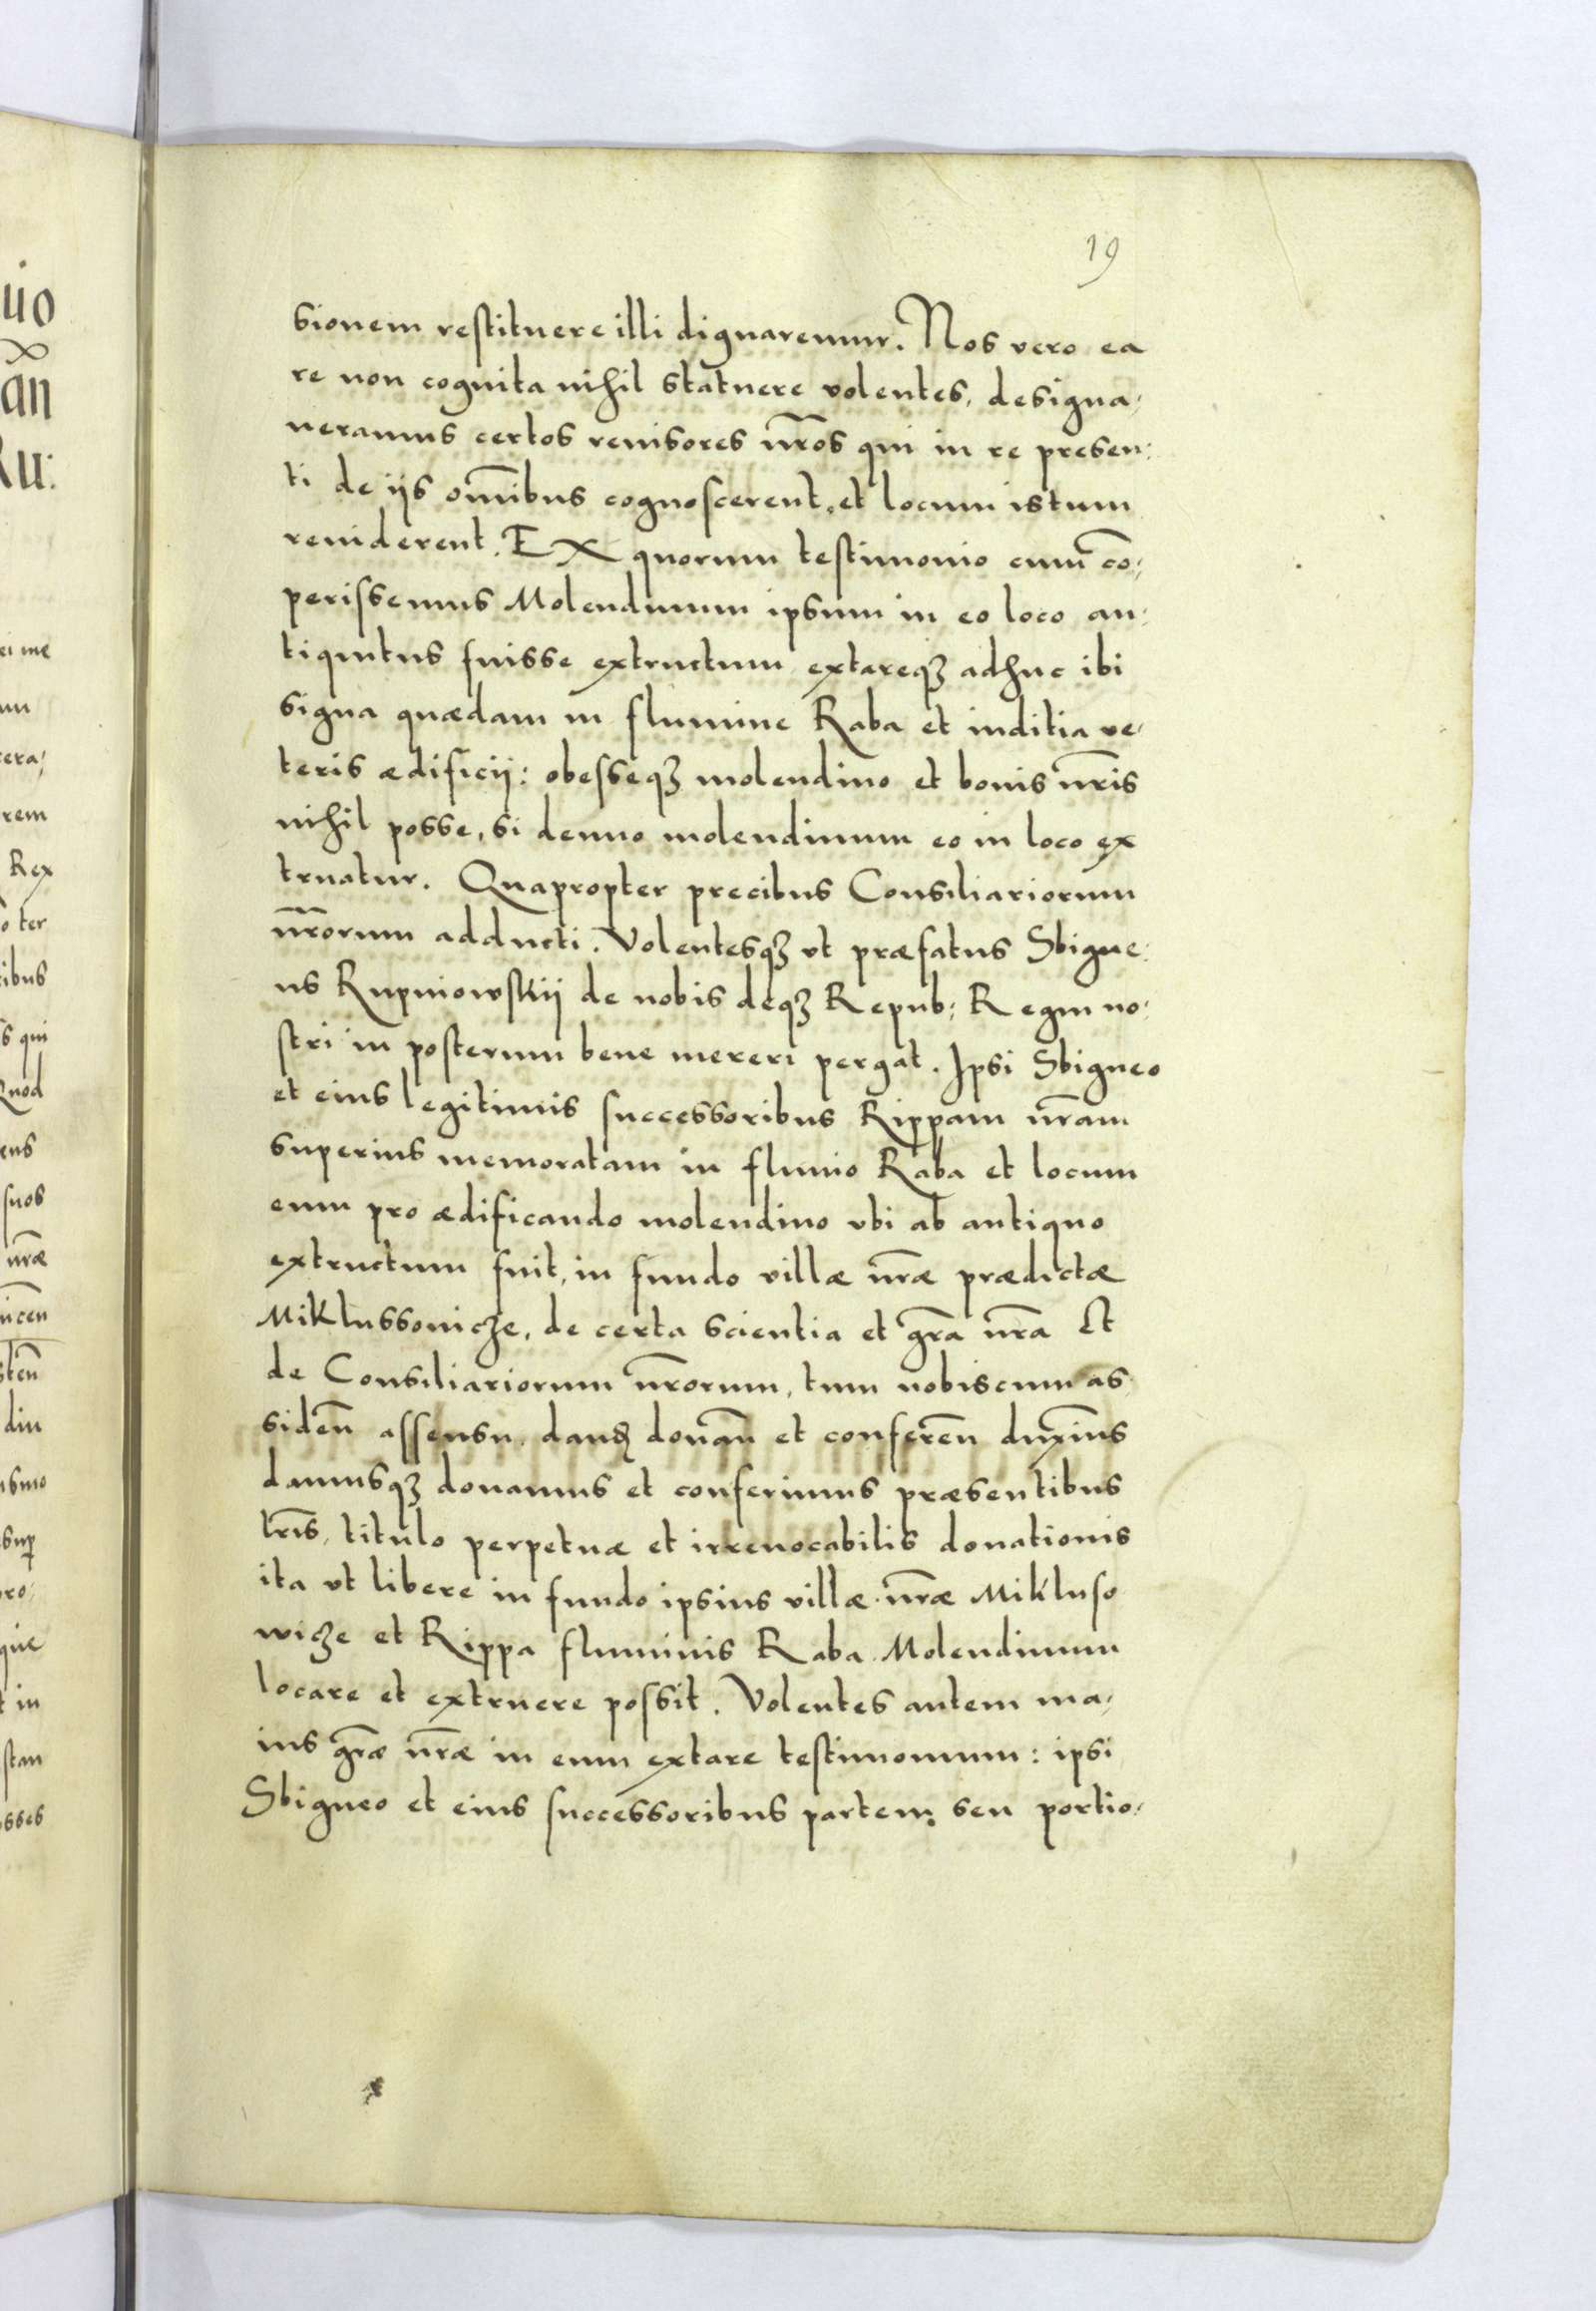 19
sionem restituere illi dignaremur. Nos vero ea
re non cognita nihil statuere volentes, designa,
ueramus certos reuisores nr̃os qui in re presen:
ti de ijs om̃ibus cognoscerent, et locum istum
reuiderent. EX quorum testimonio cum cõ,
perissemus Molendinum ipsum in eo loco an,
tiquitus fuisse extructum extareqꝫ adhuc ibi
signa quædam in flumine Raba et inditia ve,
teris ædificij: obesseqꝫ molendino et bonis nr̃is
nihil posse, si denuo molendinum eo in loco ex
truatur. Quapropter precibus Consiliariorum
nr̃orum adducti. Volentesqꝫ vt præfatus Sbigne:
us Rupniowskij de nobis deqꝫ Repub: Regni no:
stri in posterum bene mereri pergat. Ipsi Sbigneo
et eius legitimis successoribus Rippam nr̃am
superius memoratam in fluuio Raba et locum
eum pro ædificando molendino vbi ab antiquo
extructum fuit, in fundo villæ nr̃æ prædictæ
Miklussouicze, de certa scientia et gr̃a nr̃a Et
de Consiliariorum nr̃orum, tum nobiscum as
sideñ assensu, dandȝ donañ et confereñ duxim̃us
damusqꝫ donamus et conferimus præsentibus
lr̃is, titulo perpetuæ et irreuocabilis donationis
ita vt libere in fundo ipsius villæ nr̃æ Mikluso
wicze et Rippa fluminis Raba Molendinum
locare et extruere possit. Volentes autem ma,
ius gr̃æ nr̃æ in eum extare testimonium: ipsi
Sbigneo et eius successoribus partem seu portio,